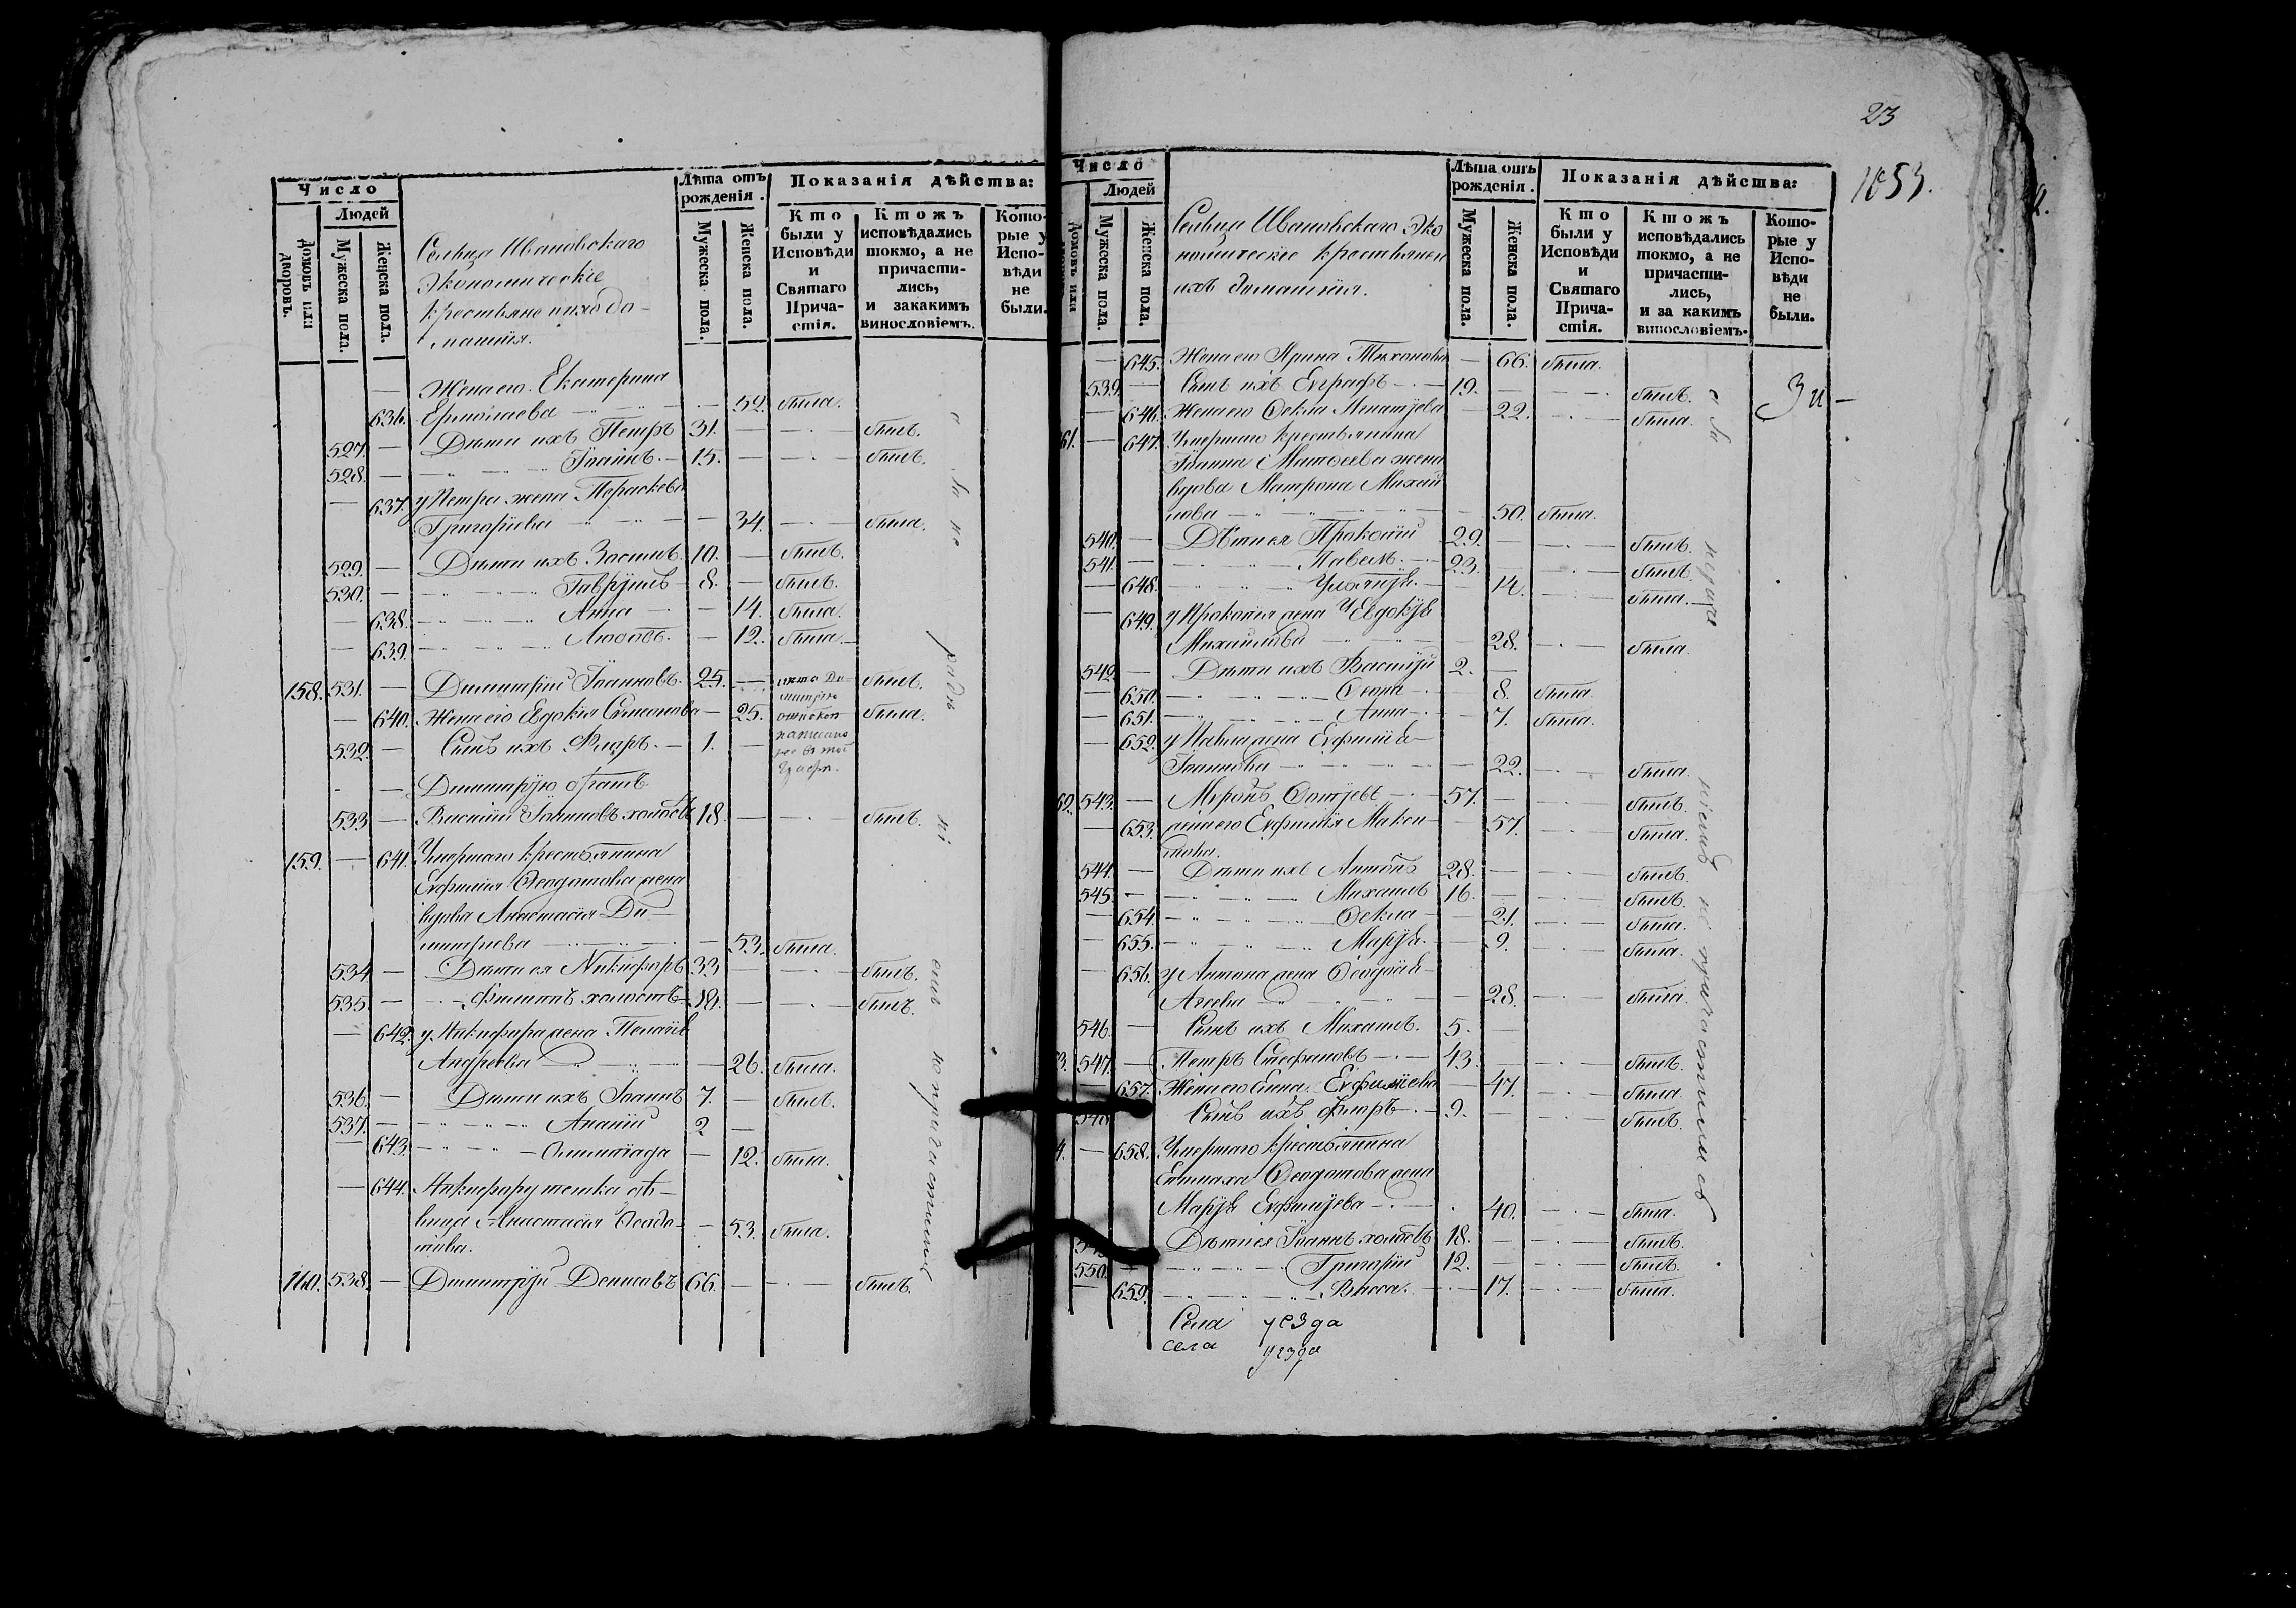 Число
Людей
Домовъ или дворовъ.
Мужеска пола.
Женска пола.
Сельца Ивановскаго
Экономическіе
крестьяне и ихъ до-
машнія.
Лѣта отъ рожденія.
Мужеска пола.
Женска пола.
Показанія дѣйства:
Кто были у Исповѣди и Святаго Причастія.
Ктожъ исповѣдались токмо, а не причастились, и закакимъ винословіемъ.
Которые у Исповѣди не были.
— Жена его Екатерина
636. Ермолаева — 52. была.
527. — Дѣти ихъ Петръ 31. — — былъ.
528. — Іоаннъ. 15. — — былъ.
— 637. у Петра жена Параскева
Григоріева — 34. — была.
529. — Дѣти ихъ 10. — былъ.
530. — 8. — былъ.
— 638. Анна — 14. была.
— 639. Любовь. — 12. была.
158. 531. — Димитрій Іоанновъ. 25. — былъ.
— 640. Жена его Евдокія Симеонова — 25. была.
532. — Сынъ ихъ Флоръ. — 1. —
Димитрію братъ
533 — Василій Іоанновъ холостъ 18. — — былъ.
159. — 641. Умершаго крестьянина
Евфимія Ѳеодотова жена
вдова Анастасія Ди-
митріева — 53. была.
534 — Дѣти ея Никифоръ 33 — — былъ.
535. — Филиппъ холостъ 18. — — былъ.
— 642. у Никифора жена Пелагія
Андреева — 26. была.
536. — Дѣти ихъ Іоаннъ 7. — былъ.
537. — Ананій 2 —
— 643. Олимпіада — 12. была.
— 644. Никифору тетка дѣ-
вица Анастасія Ѳеодо-
това. — 53. была.
160. 538. — Димитрій Денисовъ 66. — — былъ.
за не причастились
23
1053.
Число
Людей
Домовъ или
Мужеска пола.
Женска пола.
Сельца Ивановскаго Эко
номическіе крестьяне и
ихъ домашнія.
Лѣта отъ рожденія.
Мужеска пола.
Женска пола.
Показанія дѣйства:
Кто были у Исповѣди и Святаго Причастія.
Ктожъ исповѣдались токмо, а не причастились, и за какимъ винословіемъ.
Которые у Исповѣди не были.
— 645. Жена его Ирина Тихонова — 66. была.
539. — Сынъ ихъ Евграфъ — 19. — — былъ.
— 646. Жена его Ѳекла — 22. — была.
61. — 647. Умершаго крестьянина
Іоанна Матѳеева жена
вдова Матрона Михай
лова — 50. была.
540. — Дѣти ея Прокопій 29. — — былъ.
541. — Павелъ. 23. — — былъ.
— 648. — 14. — была.
— 649. у Прокопія жена Евдокія
Михайлова — 28. — была.
542. — Дѣти ихъ Василій 2. —
— 650. — 8. была.
— 651. Анна — 7. была.
— 652. у Павла жена Евфимія
Іоаннова — 22. — была.
62. 543. — Миронъ — 57. — — былъ.
— 653. жена его Евфимія Макси-
мова. — 57. — была.
544. — Дѣти ихъ Антонъ 28. — — былъ.
545. — Михаилъ 16. — — былъ.
— 654. Ѳекла — 21. — была.
— 655. Марія. — 9. — была.
— 656. у Антона жена
Агеева — 28. — была.
546. — Сынъ ихъ Михаилъ. 5. —
3. 547. — Петръ Стефановъ — 43. — — былъ.
657. Жена его Анна Евфиміева — 47. — была.
548 Сынъ ихъ Флоръ — 9. — — былъ.
4. — 658. Умершаго крестьянина
Ѳеодотова жена
Марія Евфиміева — 40. — была.
Дѣти ея Іоаннъ холостъ 18. — — былъ.
550. — Григорій 12. — — былъ.
— 659. Васса. — 17. — была.
Села уезда
села уезда
не причастились